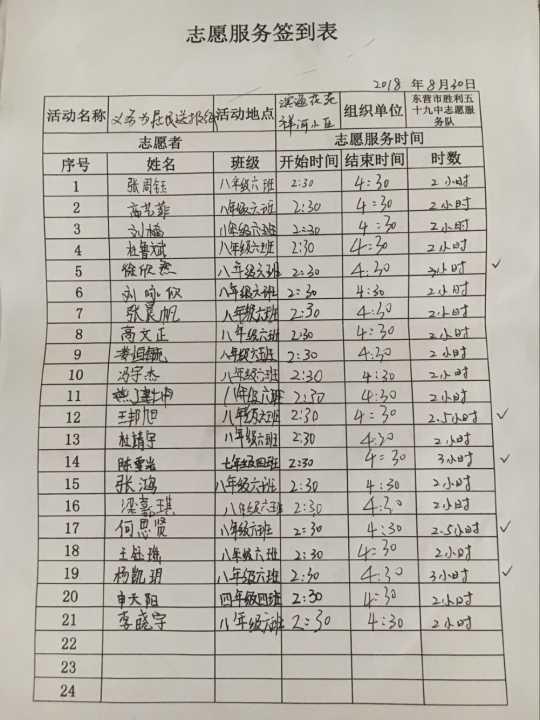 志愿服务签到表
2018 年 8月30日
活动名称 义务为居民送报纸 活动地点 滨海花苑 祥河小区 组织单位 东营市胜利五十九中志愿服务队
志愿者 志愿服务时间
序号 姓名 班级 开始时间 结束时间 时数
1 张周钰 八年级六班 2:30 4:30 2小时
2 高艺菲 八年级六班 2:30 4:30 2小时
3 刘楠 八年级六班 2:30 4:30 2小时
4 杜鲁斌 八年级六班 2:30 4:30 2小时
5 徐欣然 八年级六班 2:30 4:30 3小时
6 刘咏欣 八年级六班 2:30 4:30 2小时
7 张晨帆 八年级六班 2:30 4:30 2小时
8 高文正 八年级六班 2:30 4:30 2小时
9 八年级六班 2:30 4:30 2小时
10 冯宇杰 八年级六班 2:30 4:30 2小时
11 八年级六班 2:30 4:30 2小时
12 王邦旭 八年级六班 2:30 4:30 2.5小时
13 杜靖宇 八年级六班 2:30 4:30 2小时
14 陈雪岩 七年级四班 2:30 4:30 3小时
15 张海 八年级六班 2:30 4:30 2小时
16 梁嘉琪 八年级六班 2:30 4:30 2小时
17 何思贤 八年级六班 2:30 4:30 2.5小时
18 王钰瑞 八年级六班 2:30 4:30 2小时
19 杨凯玥 八年级六班 2:30 4:30 3小时
20 申天阳 四年级四班 2:30 4:30 2小时
21 李晓宇 八年级六班 2:30 4:30 2小时
22
23
24